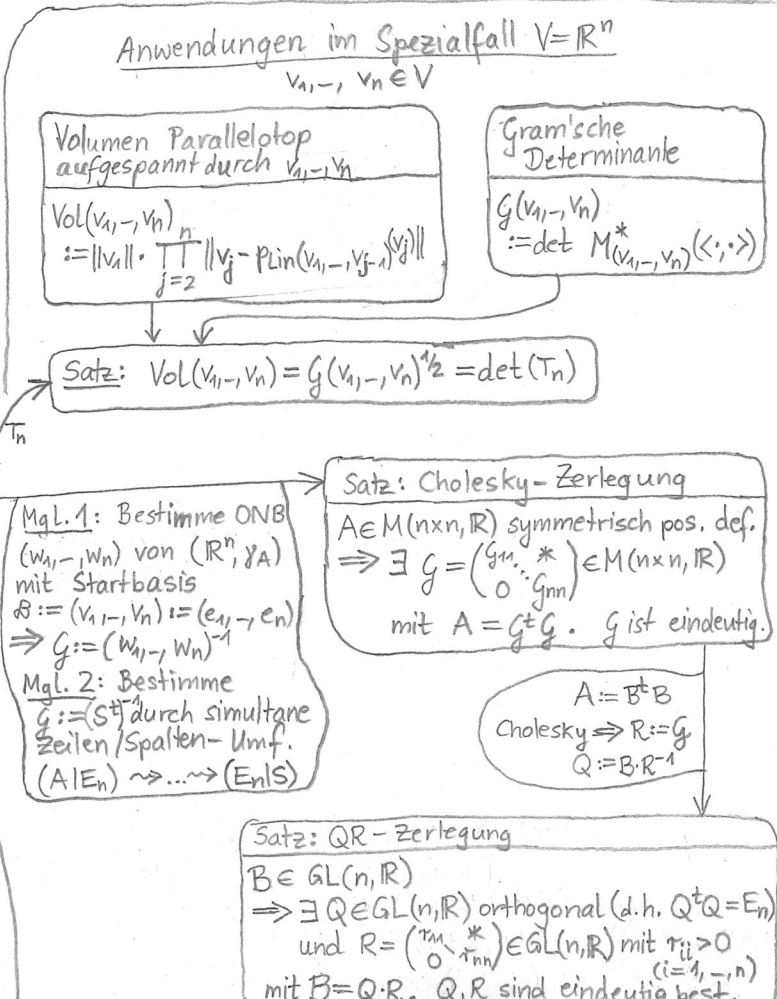 Anwendungen im Spezialfall V=ℝⁿ
v₁,–, vₙ ∈ V
Volumen Parallelotop
aufgespannt durch v₁,–,vₙ
Vol(v₁,–,vₙ)
:=‖v₁‖· ∏ⁿⱼ₌₂ ‖vⱼ - p_Lin(v₁,–,vⱼ₋₁)(vⱼ)‖
Gram'sche
Determinante
G(v₁,–,vₙ)
:=det M*_(v₁,–,vₙ)(<·,·>)
Satz: Vol(v₁,–,vₙ) = G(v₁,–,vₙ)^½ = det(Tₙ)
Tₙ
Mgl. 1: Bestimme ONB
(w₁,–,wₙ) von (ℝⁿ, γ_A)
mit Startbasis
ℬ := (v₁,–,vₙ) := (e₁,–,eₙ)
⇒ G:=(w₁,–,wₙ)⁻¹
Mgl. 2: Bestimme
G:=(Sᵗ)⁻¹ durch simultane
Zeilen/Spalten-Umf.
(A|Eₙ) ⇝...⇝ (Eₙ|S)
Satz: Cholesky-Zerlegung
A∈M(n×n, ℝ) symmetrisch pos. def.
⇒ ∃ G = (g₁₁ ⋱ * 0 gₙₙ) ∈ M(n×n, ℝ)
mit A = GᵗG. G ist eindeutig.
A := BᵗB
Cholesky ⇒ R:=G
Q:=B·R⁻¹
Satz: QR-Zerlegung
B∈ GL(n, ℝ)
⇒ ∃ Q∈GL(n, ℝ) orthogonal (d.h. QᵗQ=Eₙ)
und R = (r₁₁ ⋱ * 0 rₙₙ) ∈ GL(n, ℝ) mit rᵢᵢ>0
(i=1,–,n)
mit B=Q·R. Q,R sind eindeutig best.